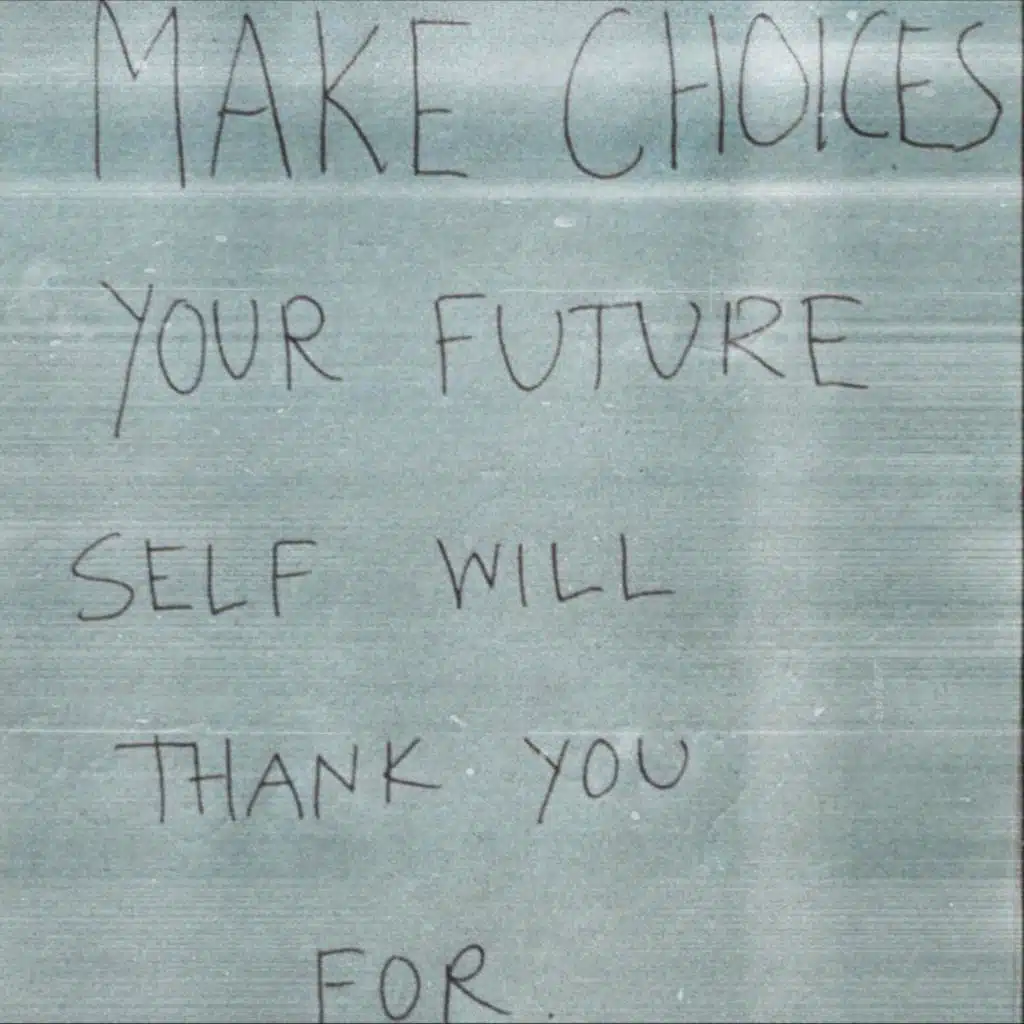 MAKE CHOICES
YOUR FUTURE
SELF WILL
THANK YOU
FOR.